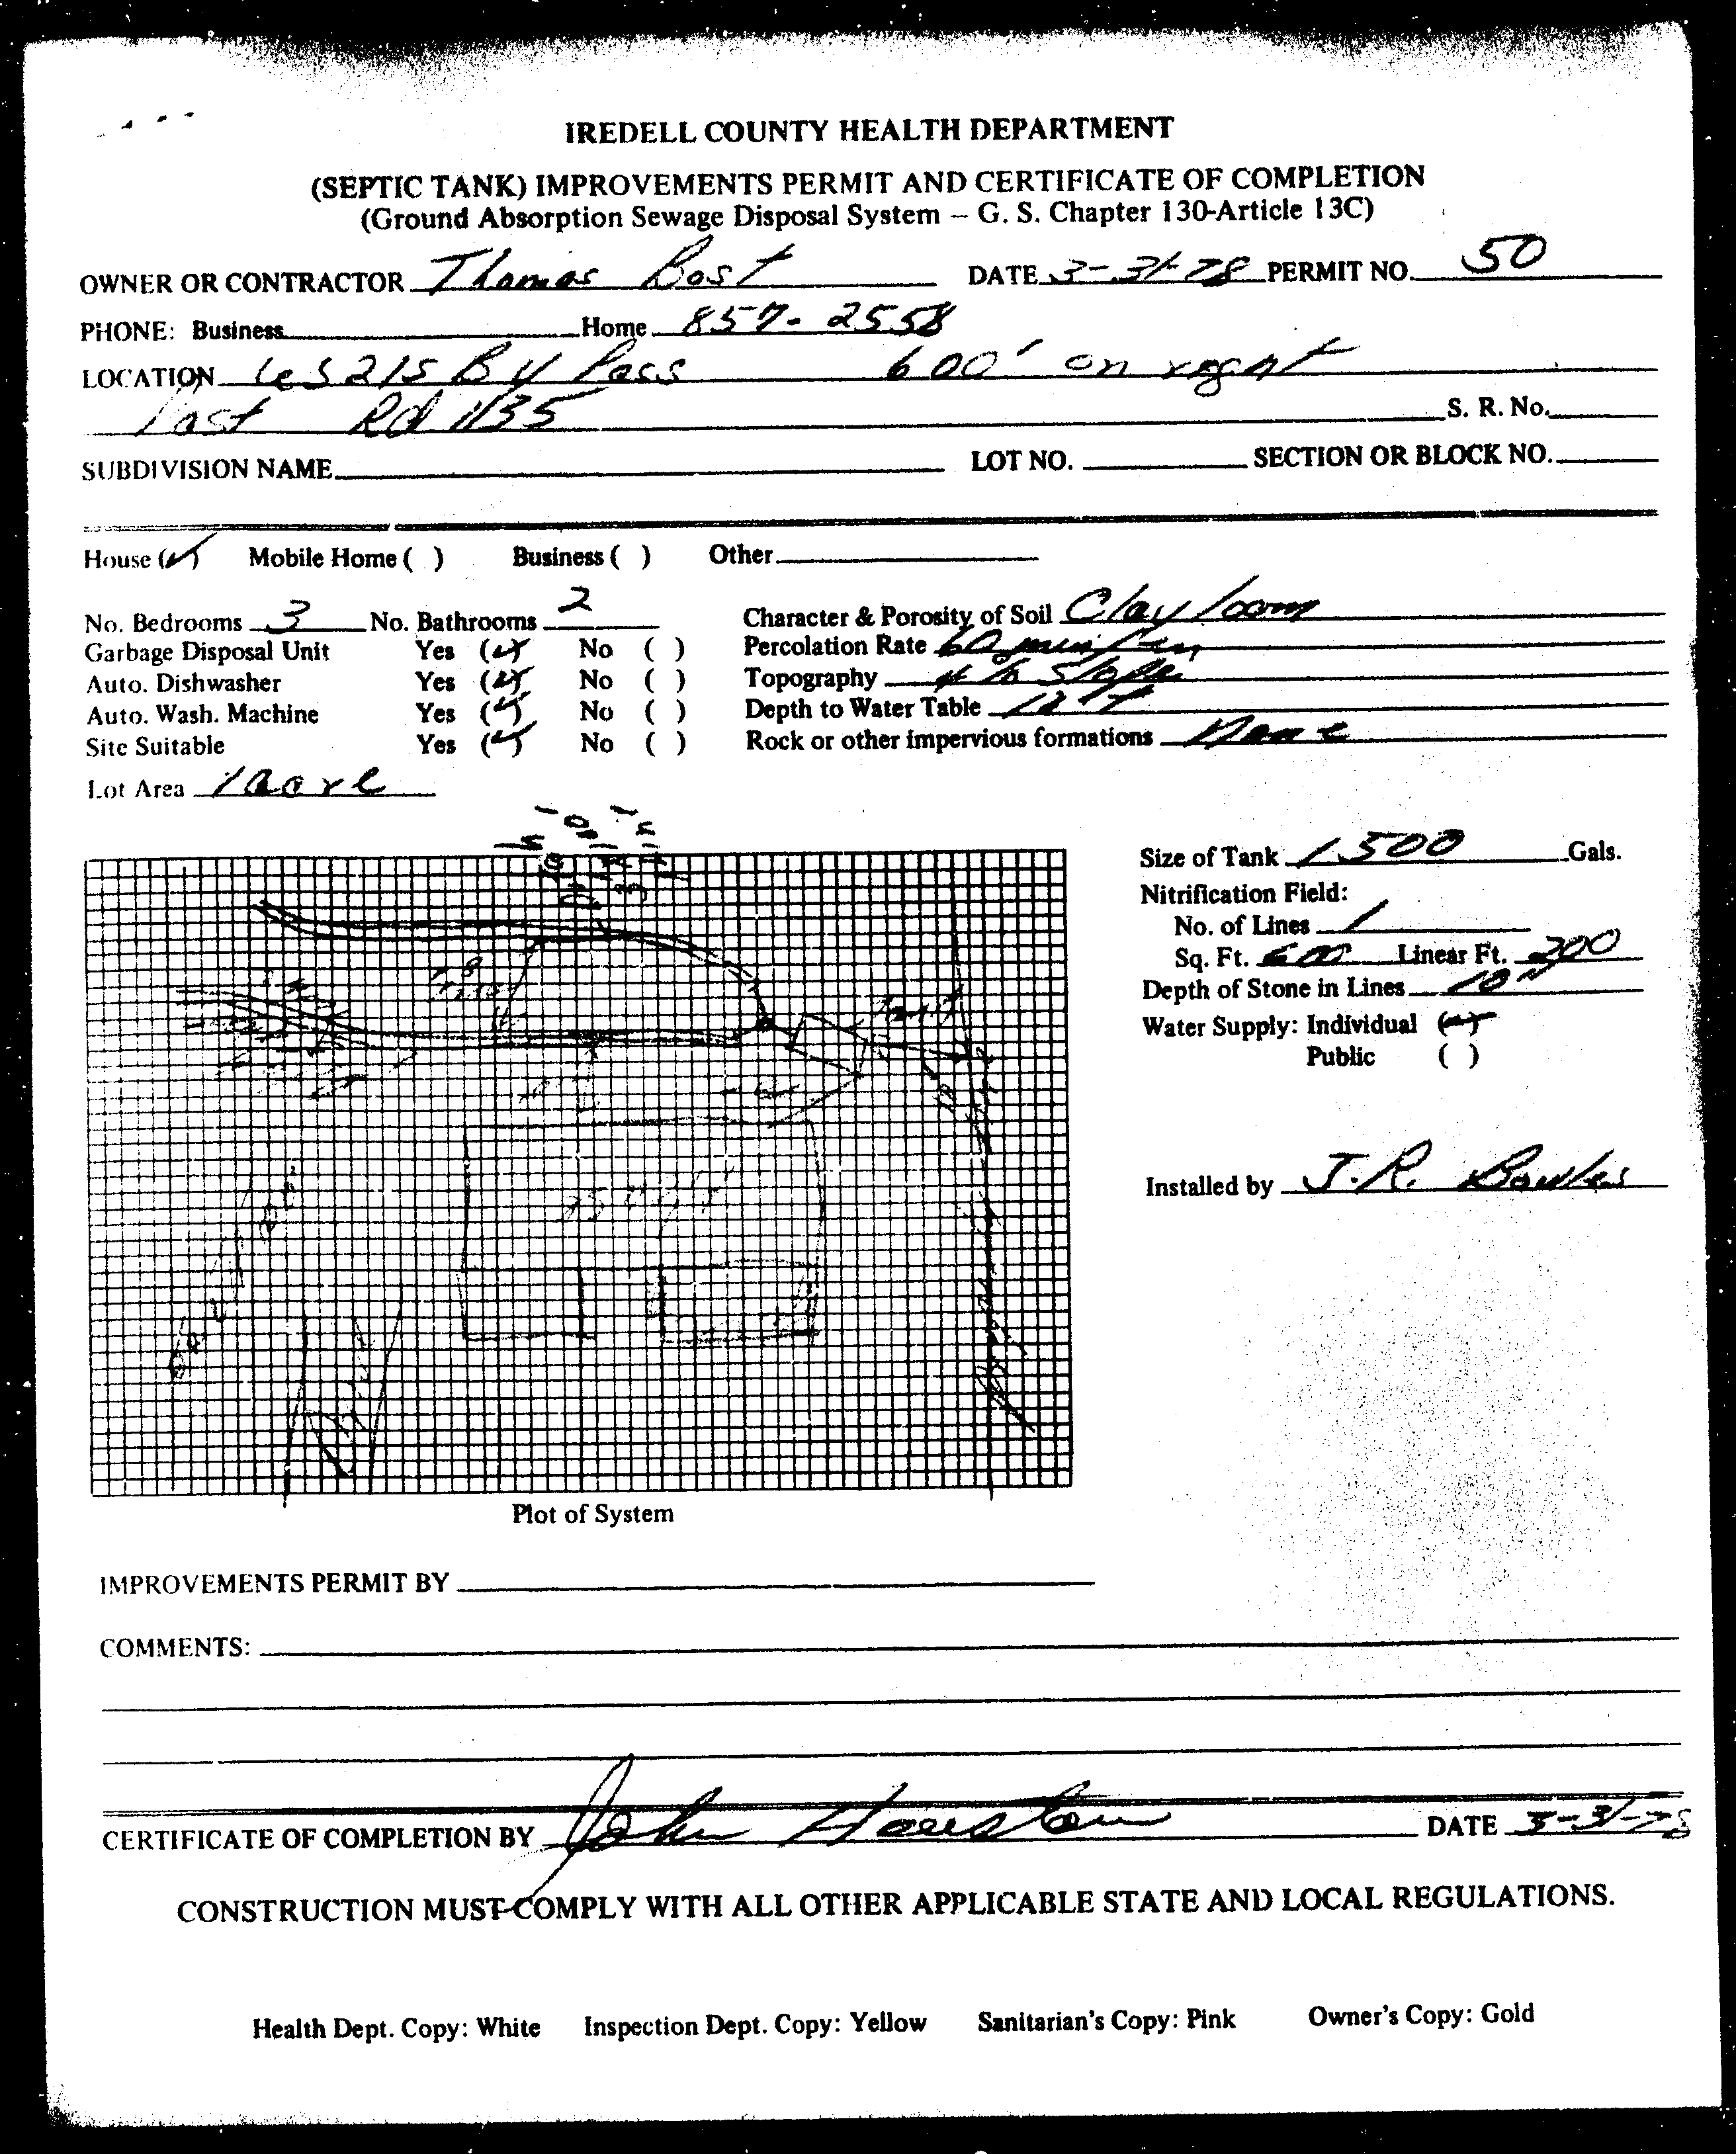 IREDELL COUNTY HEALTH DEPARTMENT
(SEPTIC TANK) IMPROVEMENTS PERMIT AND CERTIFICATE OF COMPLETION
(Ground Absorption Sewage Disposal System – G. S. Chapter 130-Article 13C)
OWNER OR CONTRACTOR Thomas Bost DATE 3-31-78 PERMIT NO. 50
PHONE: Business Home 857-2558
LOCATION US 21S By Pass 600' on right
Past Rd 1135 S. R. No.
SUBDIVISION NAME LOT NO. SECTION OR BLOCK NO.
House (✓) Mobile Home ( ) Business ( ) Other
No. Bedrooms 3 No. Bathrooms 2 Character & Porosity of Soil Clay loam
Garbage Disposal Unit Yes (✓) No ( ) Percolation Rate 60 min/in
Auto. Dishwasher Yes (✓) No ( ) Topography % Slope
Auto. Wash. Machine Yes (✓) No ( ) Depth to Water Table
Site Suitable Yes (✓) No ( ) Rock or other impervious formations None
Lot Area 1 acre
Size of Tank 1500 Gals.
Nitrification Field:
No. of Lines 1
Sq. Ft. 600 Linear Ft. 200
Depth of Stone in Lines 10"
Water Supply: Individual (✓)
Public ( )
Tank
Installed by J.R. Bowles
Plot of System
IMPROVEMENTS PERMIT BY
COMMENTS:
CERTIFICATE OF COMPLETION BY John Houston DATE 3-31-78
CONSTRUCTION MUST COMPLY WITH ALL OTHER APPLICABLE STATE AND LOCAL REGULATIONS.
Health Dept. Copy: White Inspection Dept. Copy: Yellow Sanitarian's Copy: Pink Owner's Copy: Gold